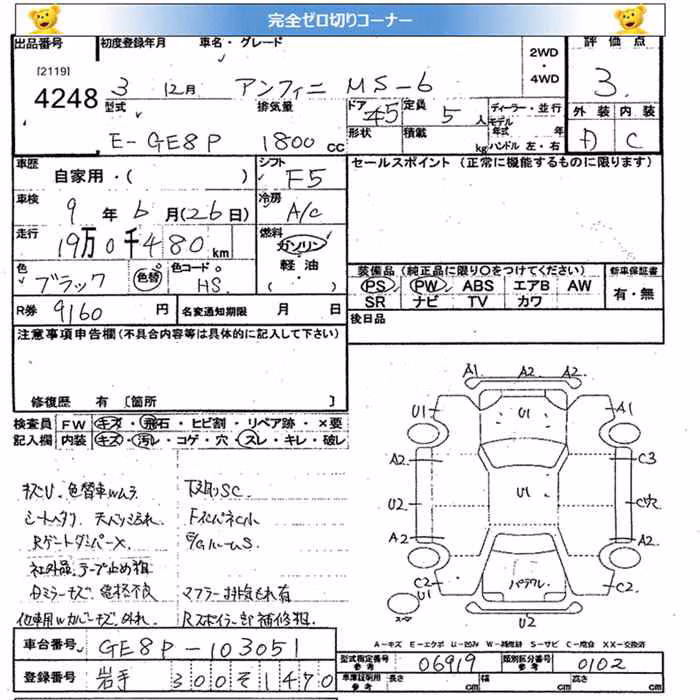 完全ゼロ切りコーナー
出品番号 初度登録年月 車名・グレード 2WD・4WD 評価点
[2119] 4248 3 12月 アンフィニ MS-6 3
型式 排気量 ドア 45 定員 5人 ディーラー・並行 外装 内装
E-GE8P 1800cc 形状 積載 kg モデル年式 年 ハンドル 左・右 D C
車歴 自家用・( ) シフト F5 セールスポイント(正常に機能するものに限ります)
車検 9年6月(26日) 冷房 A/C
走行 19万0千480km 燃料 ガソリン 軽油 ( )
色 ブラック 色替 色コード HS 装備品(純正品に限り○をつけてください) 新車保証書
PS PW ABS エアB AW 有・無
SR ナビ TV カワ
R券 9160円 名変通知期限 月 日 後日品
注意事項申告欄(不具合内容等は具体的に記入して下さい)
修復歴 有〔箇所 〕
検査員 FW キズ・飛石・ヒビ割・リペア跡・×要
記入欄 内装 キズ・汚レ・コゲ・穴・スレ・キレ・破レ
キズU. 色替車Wムラ 下廻りSC
シートヘタリ 天バリ汚れ
RゲートダンパーX
社外品 テープ止め
マフラー排気もれ有
Rスポイラー部補修
A1 A2 A2
U1 U1 A1
A2 C3
U2 U1 C穴
A2 A2
C2 U1 C2
U2
A-キズ E-エクボ U-凹み W-補修跡 S-サビ C-腐食 XX-交換済
車台番号 GE8P-103051
型式指定番号 参考 06919 類別区分番号 参考 0102
登録番号 岩手 300 そ 1470
車庫証明用 参考 長さ cm 幅 cm 高さ cm